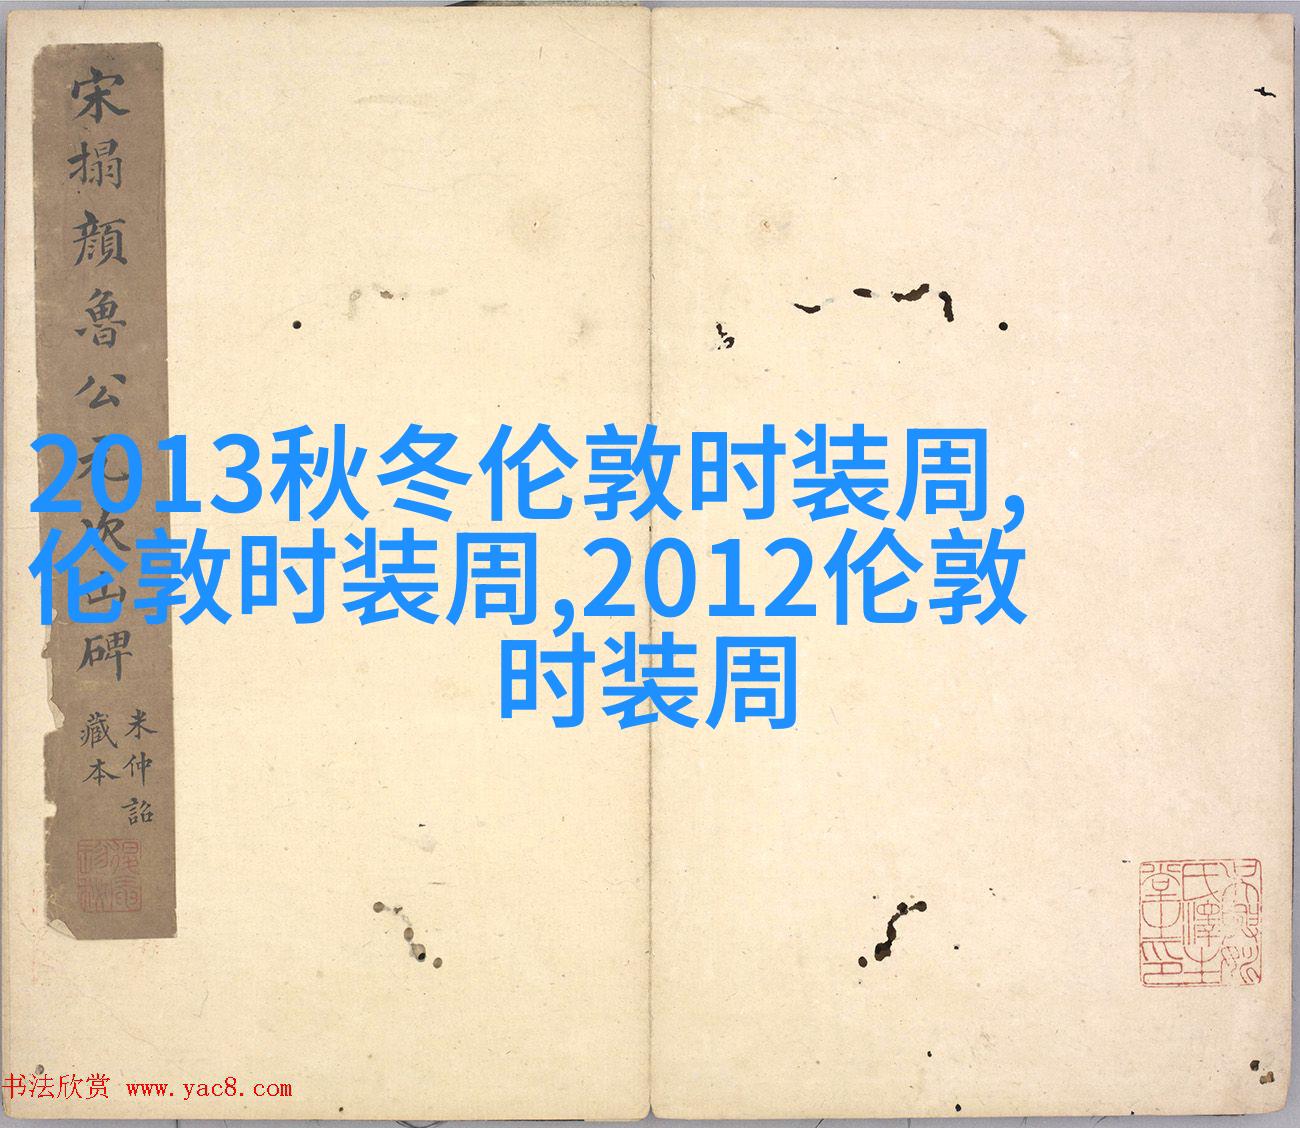 宋搨顔魯公元次山碑
米仲詔
藏本
2013秋冬伦敦时装周,
伦敦时装周,2012伦敦
时装周
书法欣赏 www.yac8.com